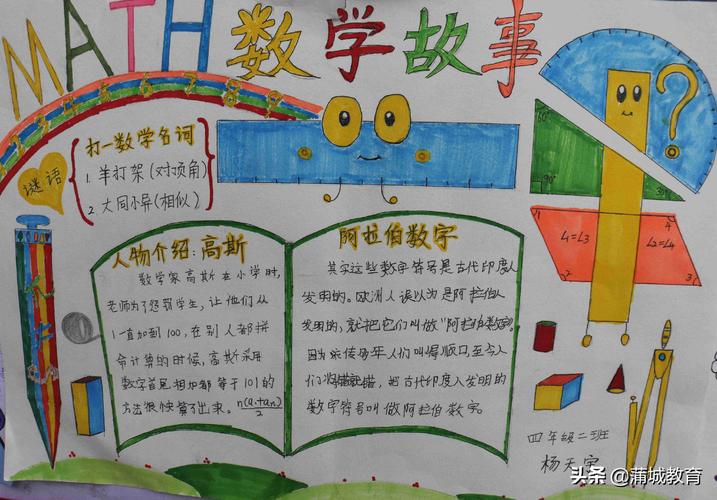 MATH 数学故事
1 2 3 4 5 6 7 8 9
谜语
打一数学名词
1. 羊打架(对顶角)
2. 大同小异(相似)
人物介绍:高斯
数学家高斯在小学时,
老师为了惩罚学生,让他们从
1一直加到100,在别人都拼
命计算的时候,高斯采用
数字首尾相加都等于101的
方法很快算了出来。n(a₁+an)/2
阿拉伯数字
其实这些数字符号是古代印度人
发明的。欧洲人误以为是阿拉伯人
发明的,就把它们叫做"阿拉伯数字"。
因为流传
年人们叫得顺口,至今人
们将错就错,把古代印度人发明的
数学符号叫做阿拉伯数字。
?
60°
90°
30°
1
4
∠1=∠3
∠2=∠4
2
3
四年级二班
杨天宇
头条 @蒲城教育